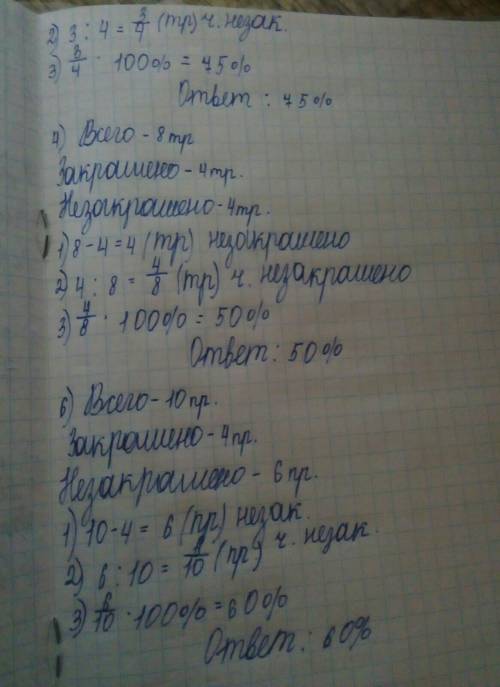 2) 3 : 4 = 3/4 (тр) ч. незак.
3) 3/4 · 100% = 75%
Ответ : 75%
4) Всего - 8 тр
Закрашено - 4 тр.
Незакрашено - 4 тр.
1) 8 - 4 = 4 (тр) незакрашено
2) 4 : 8 = 4/8 (тр) ч. незакрашено
3) 4/8 · 100% = 50%
Ответ : 50%
6) Всего - 10 пр.
Закрашено - 4 пр.
Незакрашено - 6 пр.
1) 10 - 4 = 6 (пр) незак.
2) 6 : 10 = 6/10 (пр) ч. незак.
3) 6/10 · 100% = 60%
Ответ : 60%